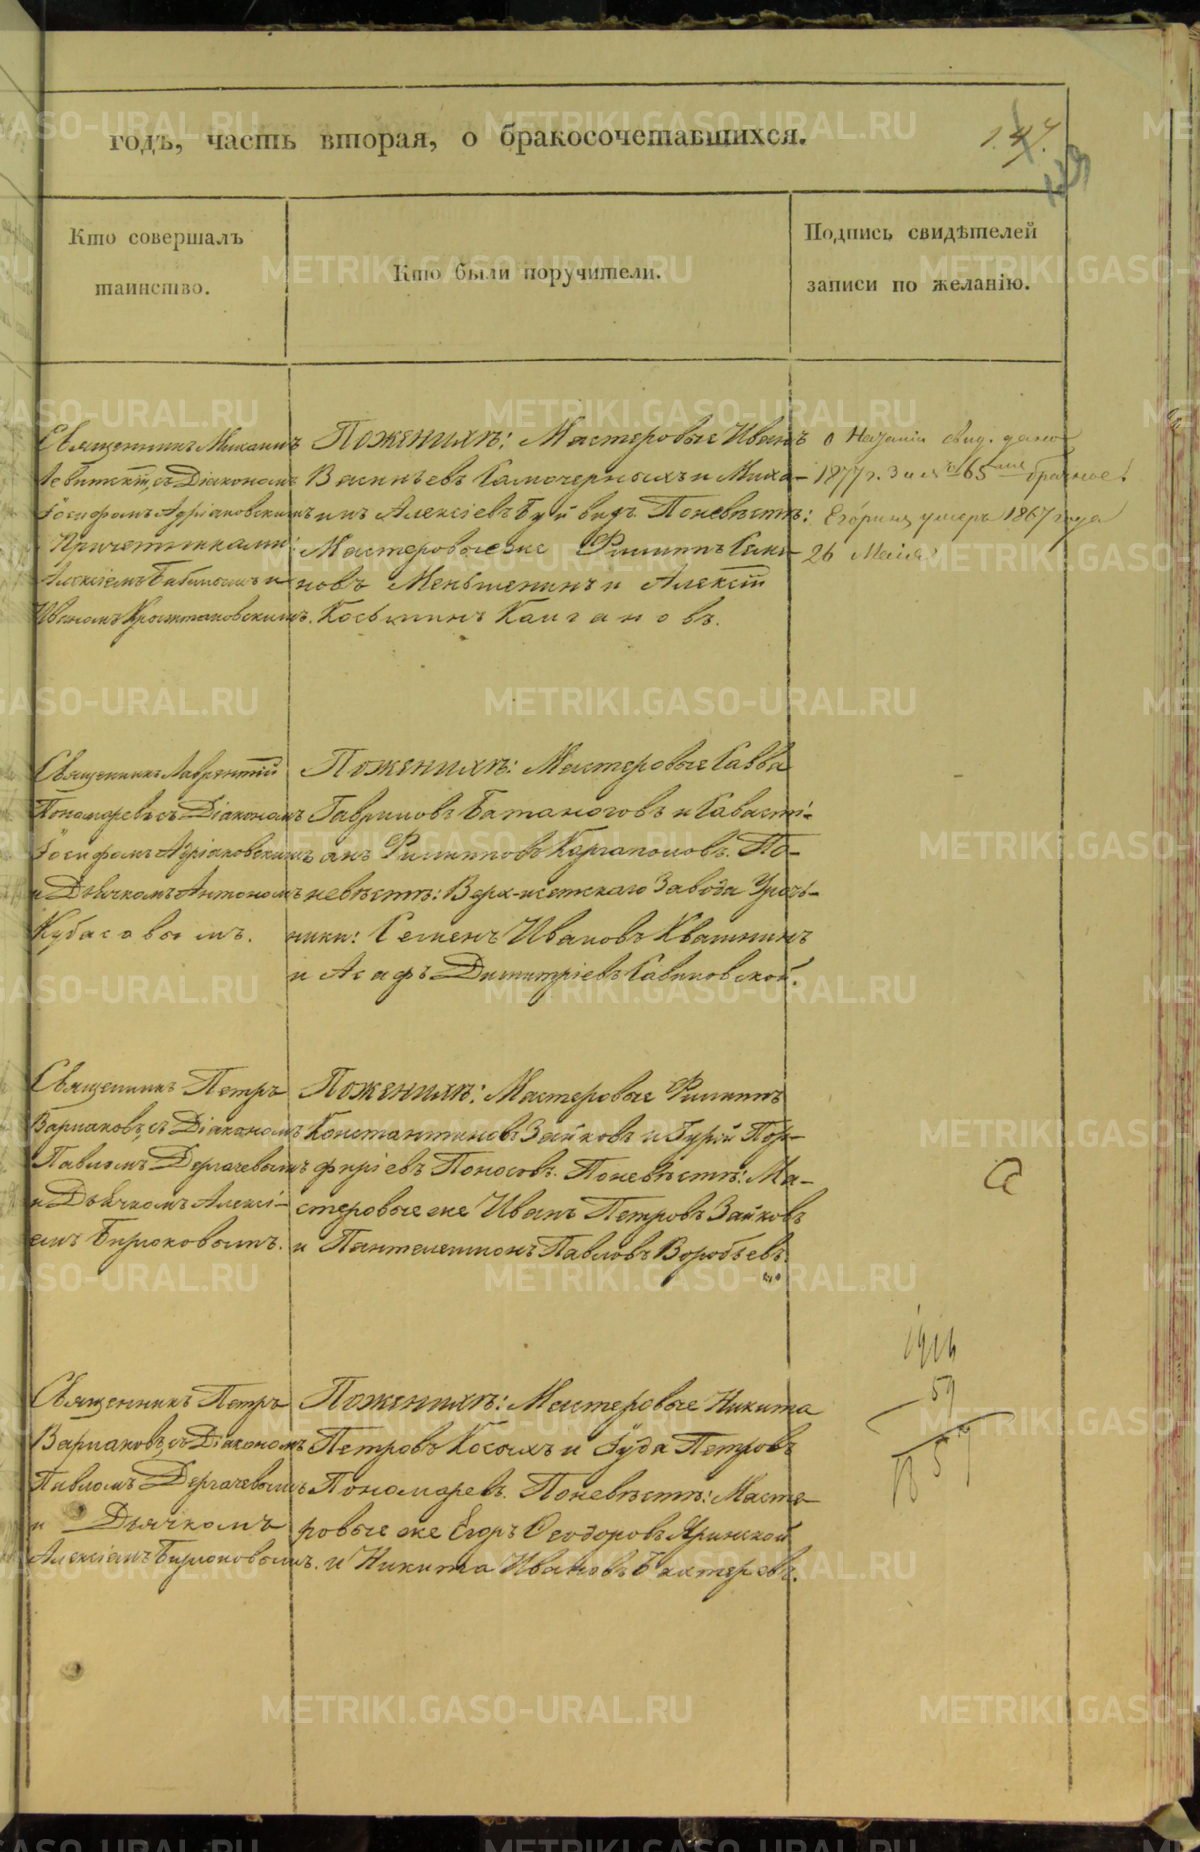 годъ, часть вторая, о бракосочетавшихся.
147.
Кто совершалъ
таинство.
Кто были поручители.
Подпись свидѣтелей
записи по желанію.
Священникъ Михаилъ
съ Діакономъ
Іосифомъ Адріановскимъ
Причетниками:
Алексіемъ и
Иваномъ
Поженихѣ: Мастеровые Иванъ
Васильевъ Самочерныхъ и Миха-
илъ Алексіевъ Поневѣстѣ:
Мастеровые же Филиппъ
новъ Меньшенинъ и Алексѣй
Косьминъ Колгановъ.
1877 г. За № 65
умеръ 1867 года
26 Маія
Священникъ Лаврентій
Пономаревъ съ Діакономъ
Іосифомъ Адріановскимъ
и Дьячкомъ Антономъ
Кубасовымъ.
Поженихѣ: Мастеровые Савва
Гавриловъ Батаноговъ и Савасті-
анъ Филипповъ Каргаполовъ. По-
невѣстѣ: Верх-исетскаго Завода Урочь-
ники: Семенъ Ивановъ Квашнинъ
и Асафъ Димитріевъ Савиновской.
Священникъ Петръ
Варлаковъ, съ Діакономъ
Павломъ Дергачевымъ
и Дьячкомъ Алексі-
емъ Бирюковымъ.
Поженихѣ: Мастеровые Филиппъ
Константиновъ Зайковъ и Гурій Пор-
фиріевъ Поносовъ. Поневѣстѣ: Ма-
стеровые же Иванъ Петровъ Зайковъ
и Пантелеимонъ Павловъ Воробьевъ.
Священникъ Петръ
Варлаковъ, съ Діакономъ
Павломъ Дергачевымъ
и Дьячкомъ
Алексіемъ Бирюковымъ.
Поженихѣ: Мастеровые Никита
Петровъ Косыхъ и Іуда Петровъ
Пономаревъ. Поневѣстѣ: Масте-
ровые же Егоръ Ѳеодоровъ Яринской
и Никита Ивановъ Бахтеревъ.
1916
59
METRIKI.GASO-URAL.RU